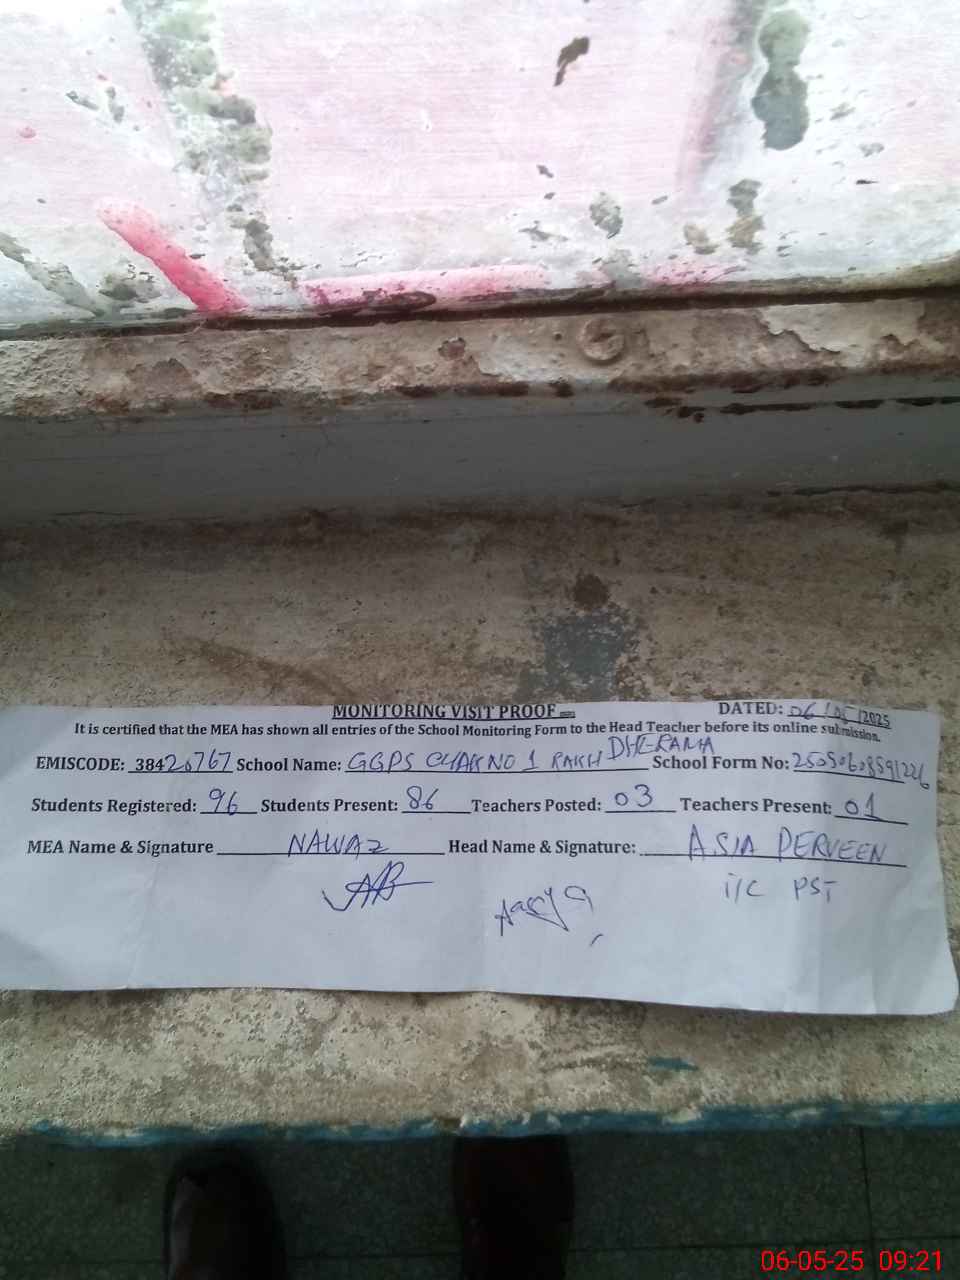 MONITORING VISIT PROOF DATED: 06/05/2025
It is certified that the MEA has shown all entries of the School Monitoring Form to the Head Teacher before its online submission.
EMISCODE: 38420767 School Name: GGPS CHAK NO 1 RAKH DHERAMA School Form No: 25050608591226
Students Registered: 96 Students Present: 86 Teachers Posted: 03 Teachers Present: 01
MEA Name & Signature NAWAZ Head Name & Signature: ASIA PERVEEN
i/c PST
06-05-25 09:21